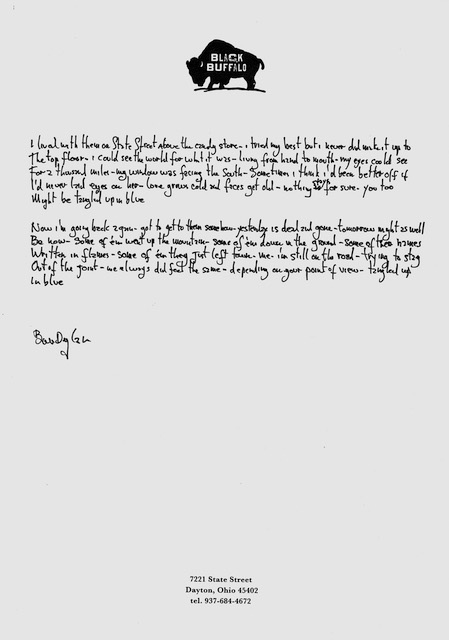 BLACK
BUFFALO
I lived with them on State Street above the candy store - i tried my best but i never did make it up to
The top floor - i could see the world for what it was - living from hand to mouth - my eyes could see
For a thousand miles - my window was facing the south - Sometimes i think i'd been better off if
I'd never laid eyes on her - love grows cold and faces get old - nothing stays for sure. you too
Might be tangled up in blue
Now i'm going back again - got to get to them somehow - yesterday is dead and gone - tomorrow might as well
Be now - Some of 'em went up the mountain - some of 'em down in the ground - Some of their names
Written in flames - some of 'em they just left town - me - i'm still on the road - trying to stay
Out of the joint - we always did feel the same - depending on your point of view - tangled up
in blue
Bob Dylan
7221 State Street
Dayton, Ohio 45402
tel. 937-684-4672